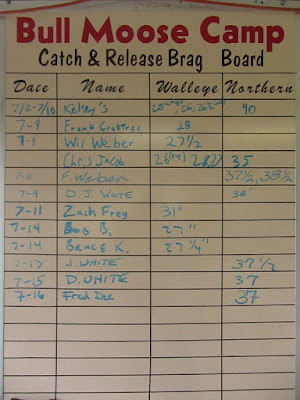 Bull Moose Camp
Catch & Release Brag Board
Date Name Walleye Northern
7/2-7/10 Kelsey's 40
7-9 Frank Crabtree 28
Wil Weber 27 1/2
Chris Jacob 35
7-11 F. Weber 37 1/2, 38 1/2
7-9 D.J. WHITE
7-11 Zach Frey 31"
7-14 Bob B. 27"
7-14 Bruce K. 27 1/4"
J. WHITE 37 1/2
7-15 D. WHITE 37
7-16 Fred Dee 37